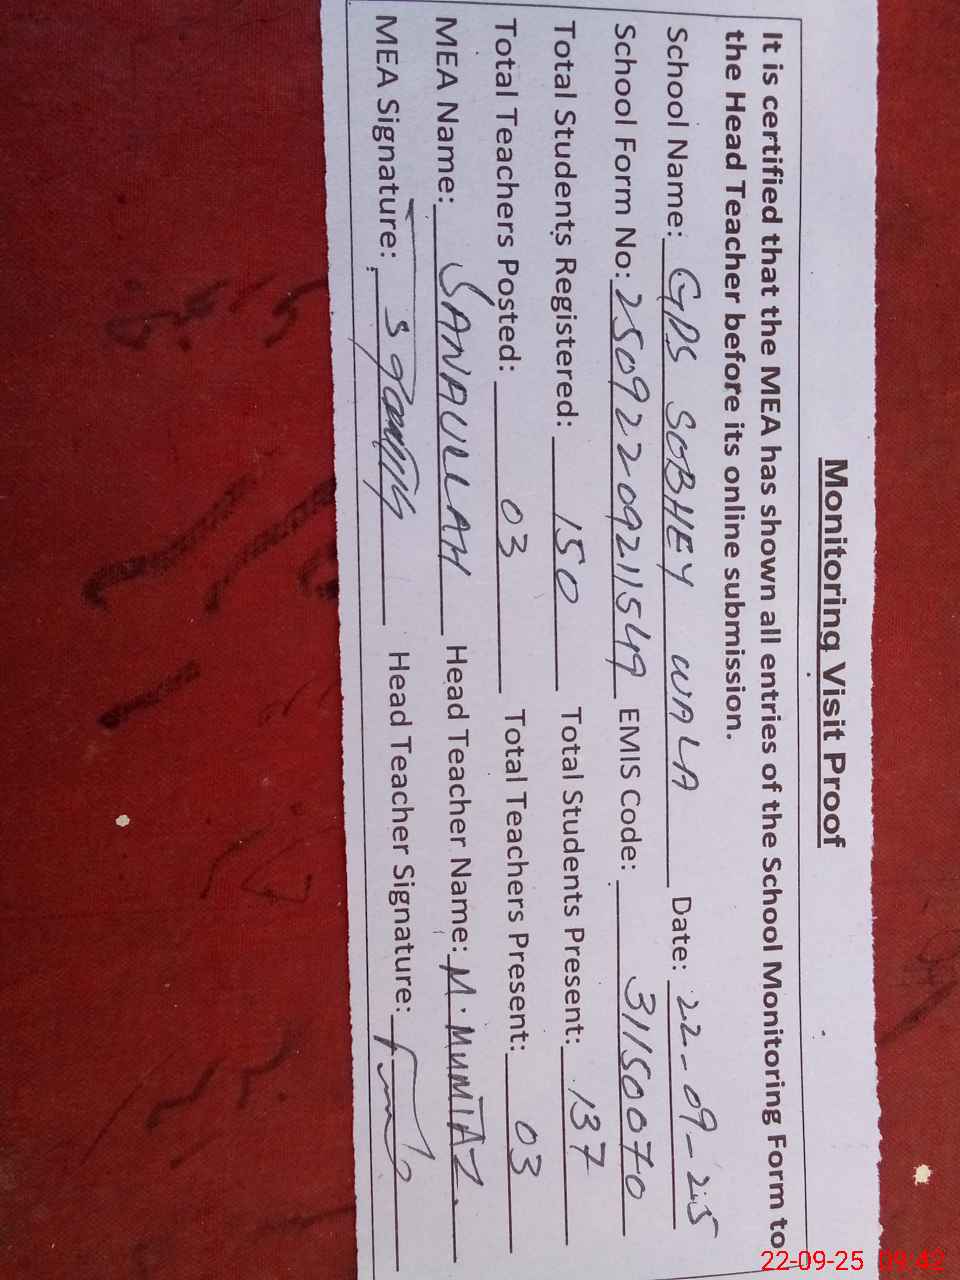 Monitoring Visit Proof
It is certified that the MEA has shown all entries of the School Monitoring Form to
the Head Teacher before its online submission.
School Name: GPS SOBHEY WALA Date: 22-09-25
School Form No: 25092209211549 EMIS Code: 31150070
Total Students Registered: 150 Total Students Present: 137
Total Teachers Posted: 03 Total Teachers Present: 03
MEA Name: SANAULLAH Head Teacher Name: M. MUMTAZ.
MEA Signature: Head Teacher Signature:
22-09-25 09:42